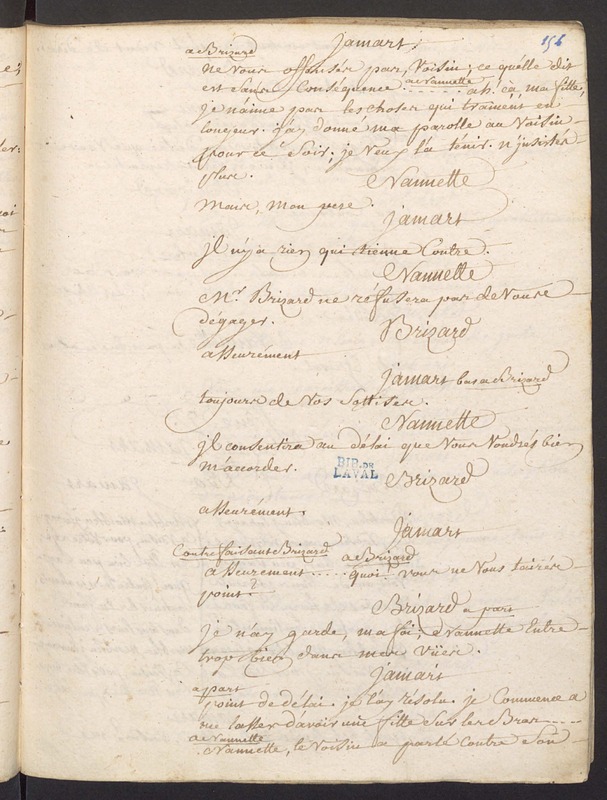 jamart. 156
a Brizard
ne vous offensés pas, Voisin; ce qu'elle dit
a Nannette
est sans Conséquence ..... ah. cà, ma fille,
je n'aime pas les choses qui trainent en
longeur. j'ay donné ma parolle au Voisin
pour ce Soir; je veux la tenir. n'jnsistés
plus.
Nannette
mais, mon pere.
jamart
jl n'y a rien qui tienne Contre.
Nannette
Mr. Brizard ne réfusera pas de Vous
dégager.
Brizard
assurément
jamart bas a Brizard
toujours de Vos Sottises.
Nannette
jl consentira au délai que Vous Voudrés bien
m'accorder.
BIB. DE
LAVAL
Brizard
assurément.
jamart
Contrefaisant Brizard a Brizard
assurement ..... quoi! vous ne Vous tairés
point?
Brizard a part
je n'ay garde, ma foi; Nannette Entre
trop bien dans mes vües.
jamart
a part
point de délai. je l'ay résolu. je Commence a
me lasser d'avoir une fille Sur les Bras ....
a Nannette
Nannette, le Voisin a parlé Contre Son